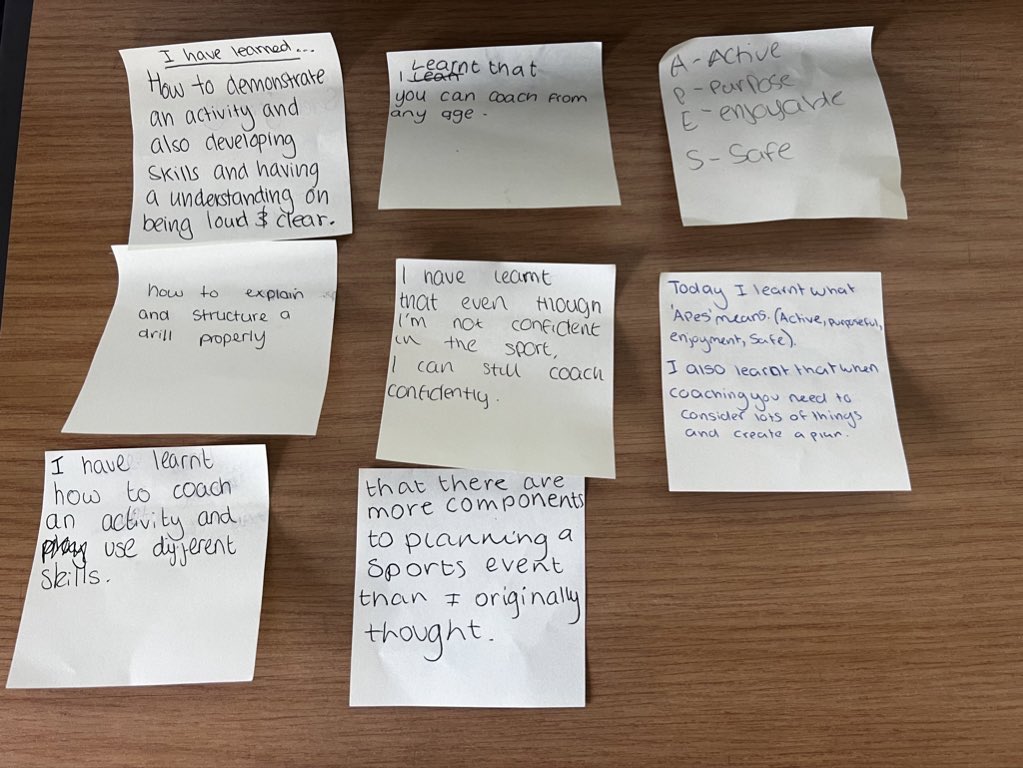 I have learned...
How to demonstrate
an activity and
also developing
skills and having
a understanding on
being loud & clear.
I learnt that
you can coach from
any age.
A - Active
P - Purpose
E - enjoyable
S - Safe
how to explain
and structure a
drill properly
I have learnt
that even though
I'm not confident
in the sport,
I can still coach
confidently.
Today I learnt what
'Apes' means. (Active, purposeful,
enjoyment, Safe).
I also learnt that when
coaching you need to
consider lots of things
and create a plan.
I have learnt
how to coach
an activity and
use different
skills.
that there are
more components
to planning a
sports event
than I originally
thought.